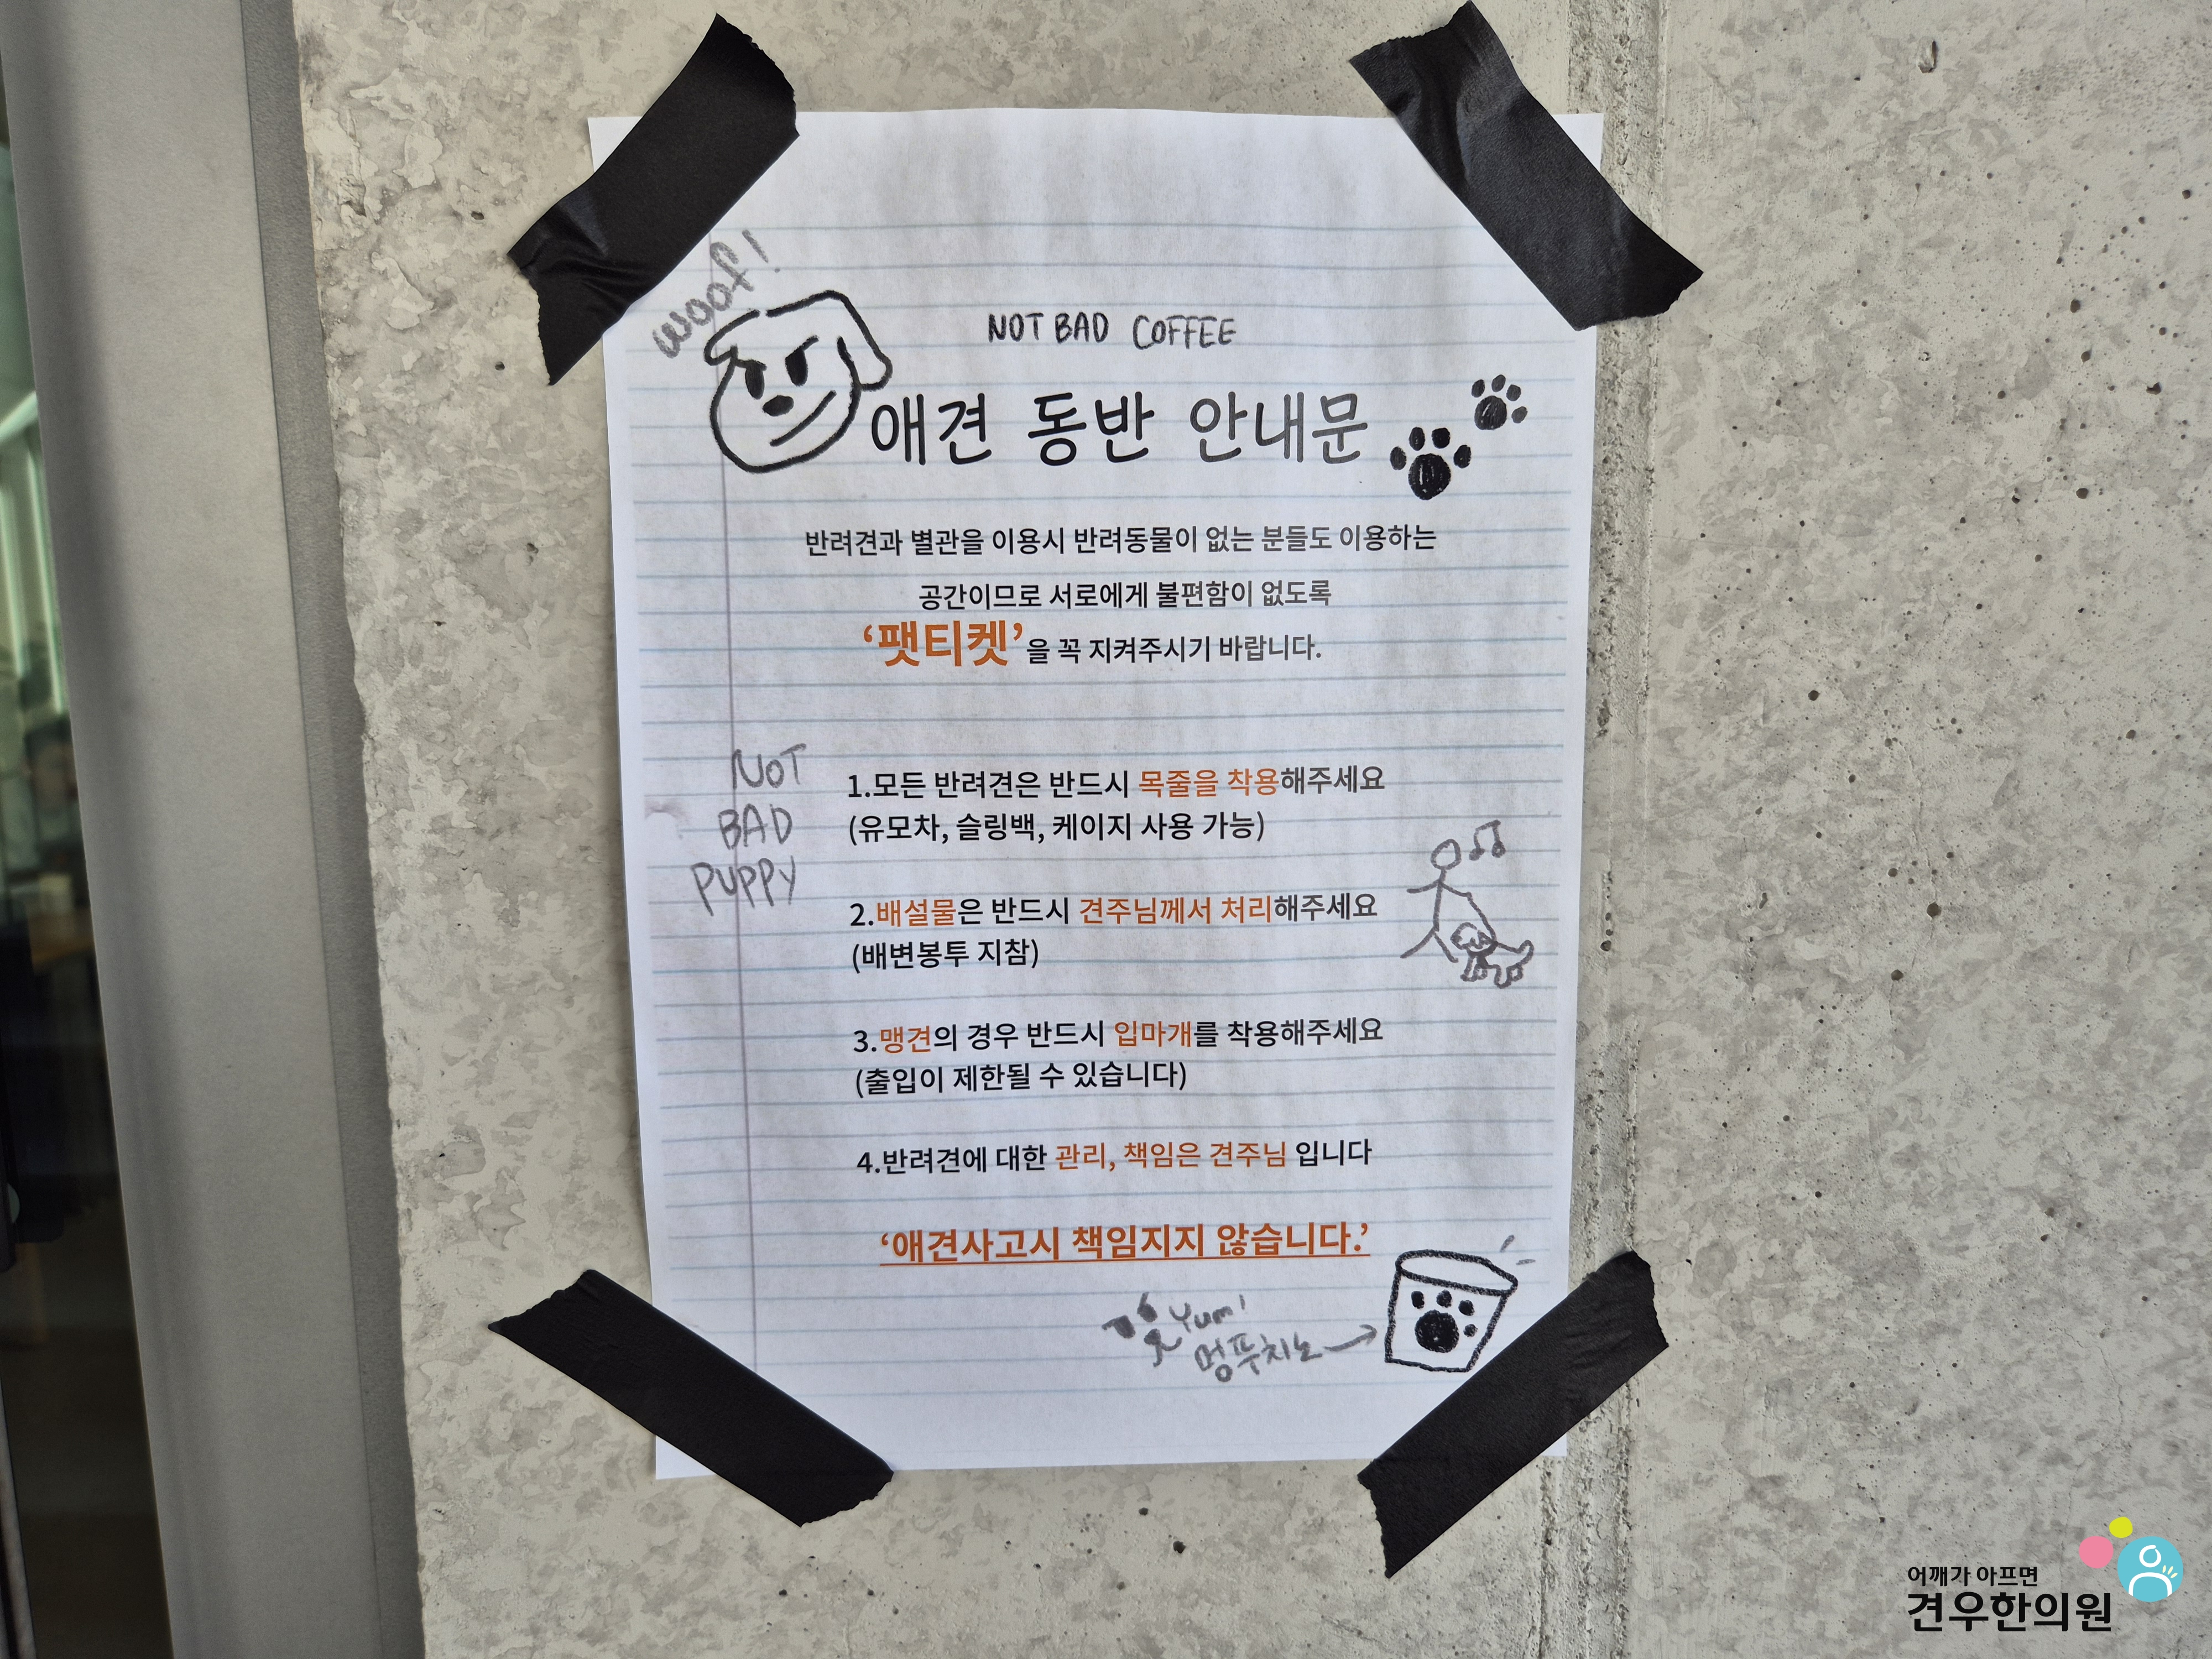 woof!
NOT BAD COFFEE
애견 동반 안내문
반려견과 별관을 이용시 반려동물이 없는 분들도 이용하는
공간이므로 서로에게 불편함이 없도록
‘팻티켓’을 꼭 지켜주시기 바랍니다.
NOT
BAD
PUPPY
1.모든 반려견은 반드시 목줄을 착용해주세요
(유모차, 슬링백, 케이지 사용 가능)
2.배설물은 반드시 견주님께서 처리해주세요
(배변봉투 지참)
3.맹견의 경우 반드시 입마개를 착용해주세요
(출입이 제한될 수 있습니다)
4.반려견에 대한 관리, 책임은 견주님 입니다
‘애견사고시 책임지지 않습니다.’
Yum!
멍푸치노
어깨가 아프면
견우한의원